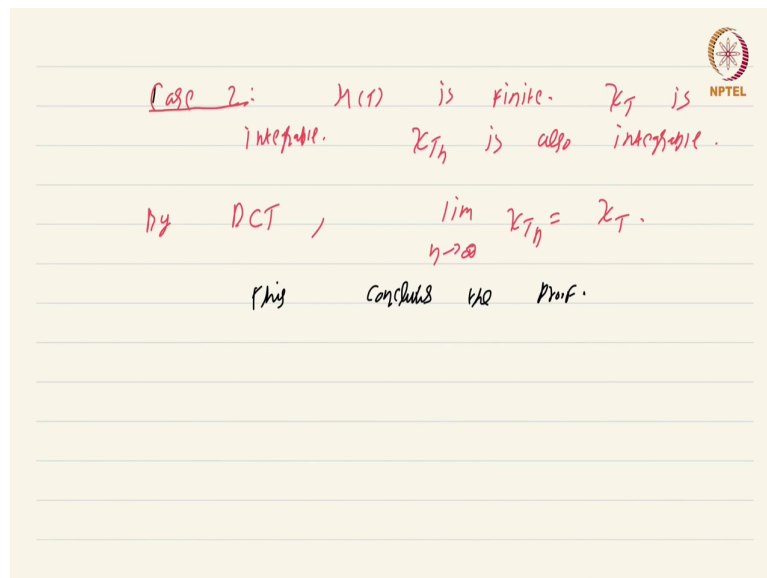 NPTEL
Case 2: μ(T) is finite. χ_T is
integrable. χ_{T_n} is also integrable.
By DCT, lim_{n→∞} χ_{T_n} = χ_T.
This concludes the proof.